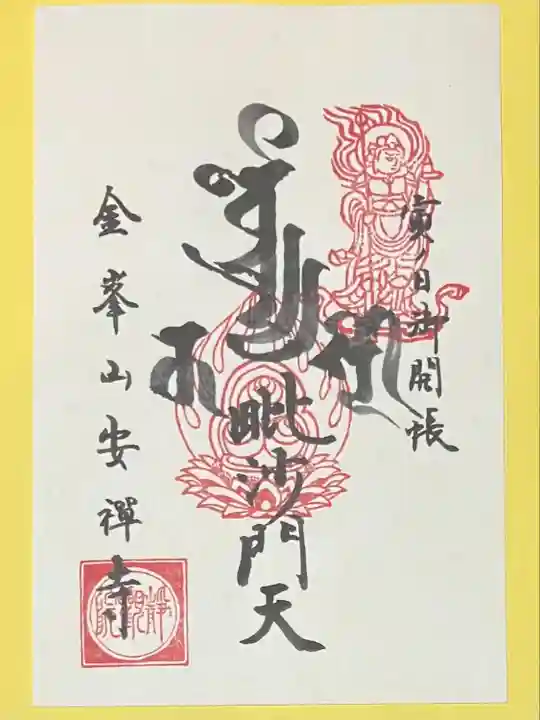 寅ノ日御開帳
毗沙門天
金峯山安禪寺